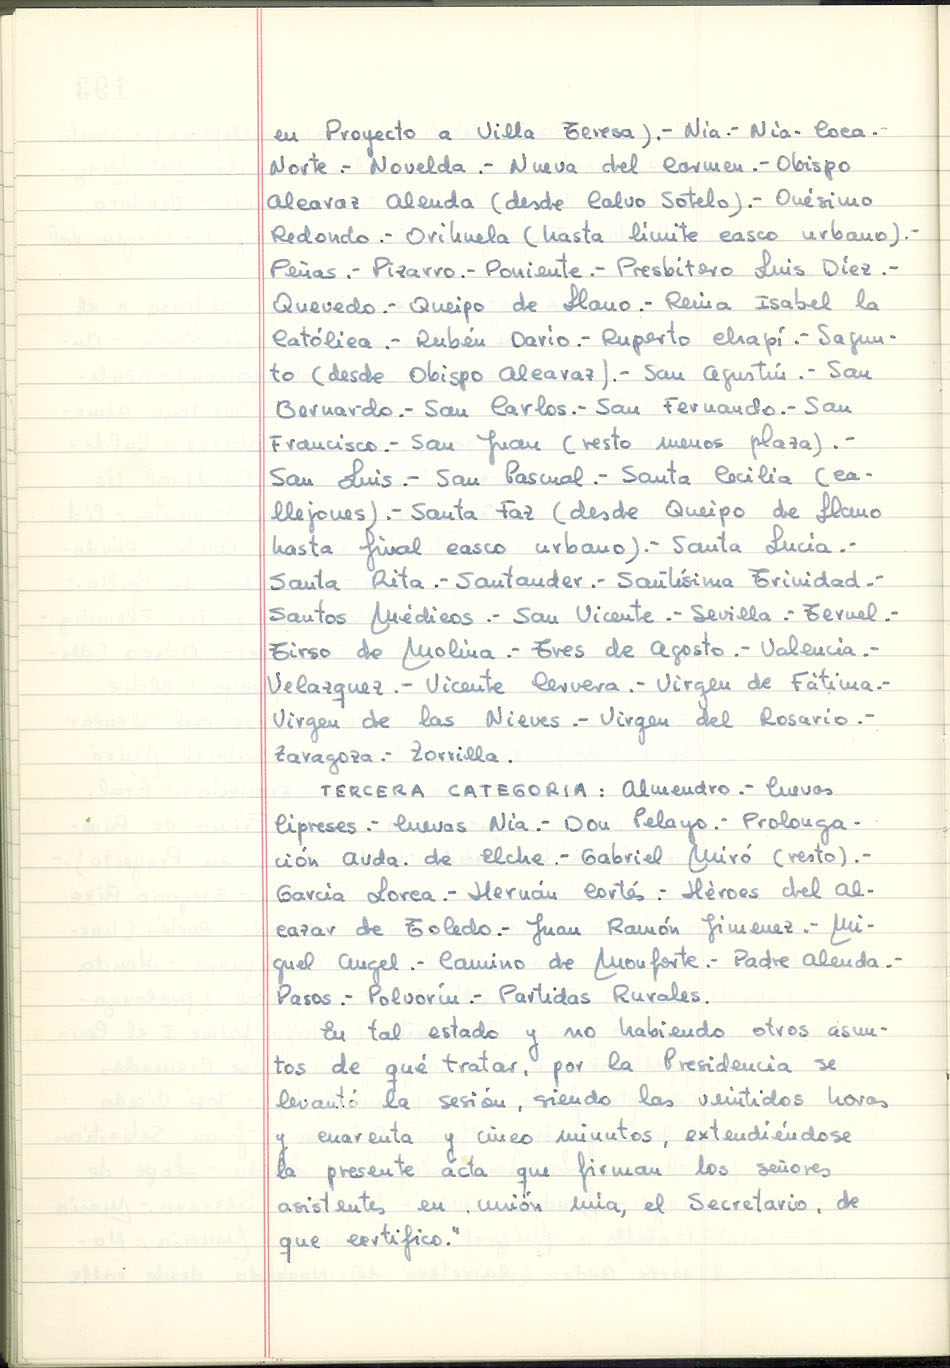 en Proyecto a Villa Teresa).- Nía.- Nía- Coca.-
Norte.- Novelda.- Nueva del Carmen.- Obispo
Alcaraz Alenda (desde Calvo Sotelo).- Onésimo
Redondo.- Orihuela (hasta límite casco urbano).-
Peñas.- Pizarro.- Poniente.- Presbítero Luis Díez.-
Quevedo.- Queipo de Llano.- Reina Isabel la
Católica.- Rubén Dario.- Ruperto Chapí.- Sagun-
to (desde Obispo Alcaraz).- San Agustín.- San
Bernardo.- San Carlos.- San Fernando.- San
Francisco.- San Juan (resto menos plaza).-
San Luis.- San Pascual.- Santa Cecilia (ca-
llejones).- Santa Faz (desde Queipo de Llano
hasta final casco urbano).- Santa Lucía.-
Santa Rita.- Santander.- Santísima Trinidad.-
Santos Médicos.- San Vicente.- Sevilla.- Teruel.-
Tirso de Molina.- Tres de Agosto.- Valencia.-
Velazquez.- Vicente Cervera.- Virgen de Fátima.-
Virgen de las Nieves.- Virgen del Rosario.-
Zaragoza.- Zorrilla.
TERCERA CATEGORIA: Almendro.- Cuevas
Cipreses.- Cuevas Nía.- Don Pelayo.- Prolonga-
ción Avda. de Elche.- Gabriel Miró (resto).-
García Lorca.- Hernán Cortés.- Héroes del Al-
cazar de Toledo.- Juan Ramón Jimenez.- Mi-
guel Angel.- Camino de Monforte.- Padre Alenda.-
Pasos.- Polvorín.- Partidas Rurales.
En tal estado y no habiendo otros asun-
tos de qué tratar, por la Presidencia se
levantó la sesión, siendo las veintidos horas
y cuarenta y cinco minutos, extendiéndose
la presente acta que firman los señores
asistentes en unión mia, el Secretario, de
que certifico."